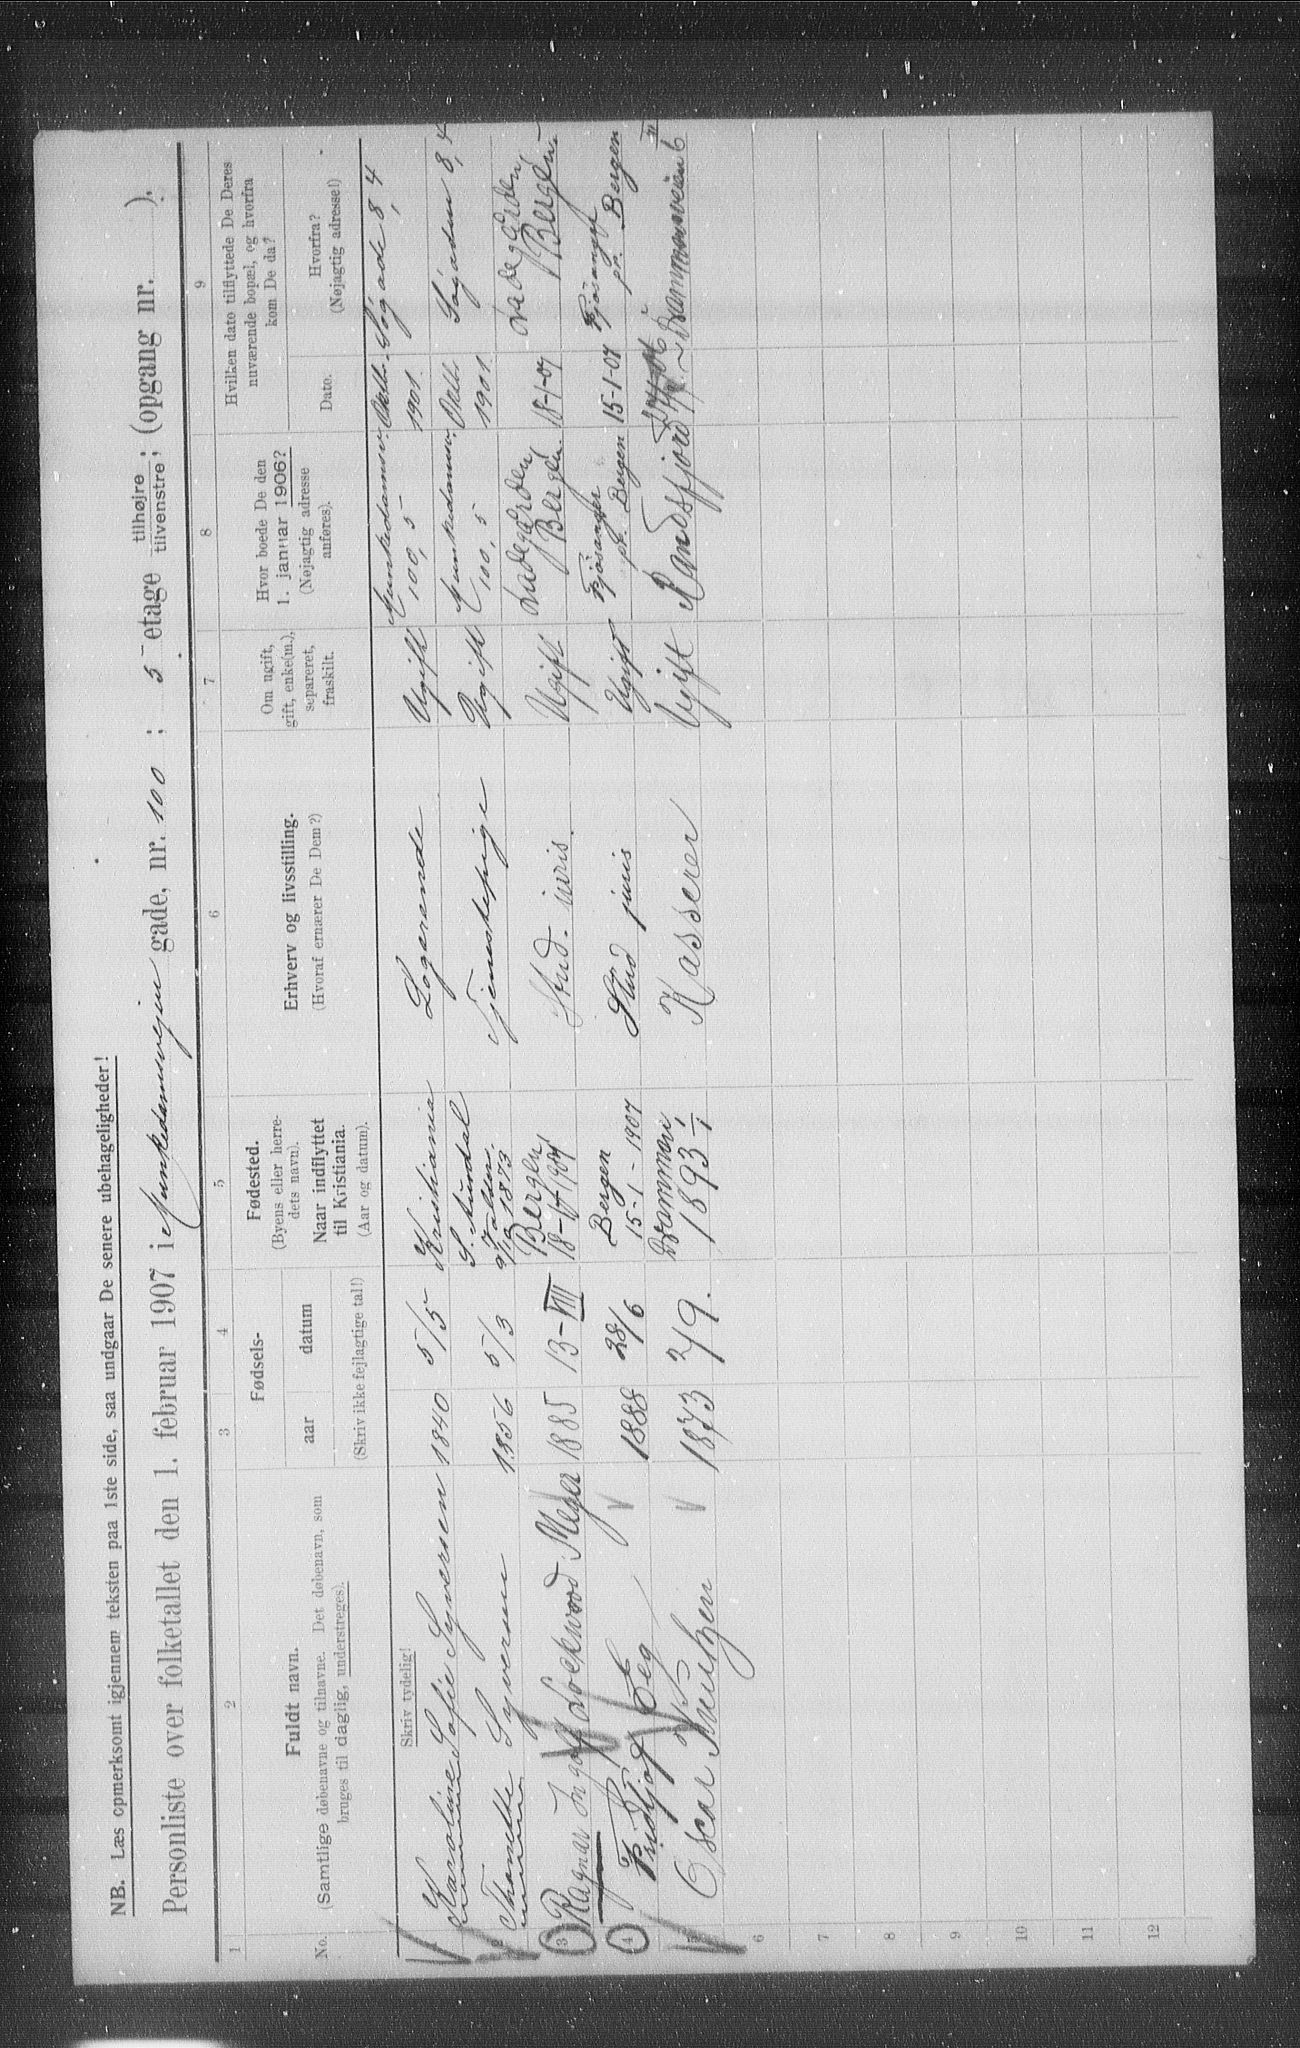 NB. Læs opmerksomt igjennem teksten paa 1ste side, saa undgaar De senere ubehageligheder!
Personliste over folketallet den 1. februar 1907 i Munkedamsvejen gade, nr. 100 ; 5 etage tilhøjre tilvenstre ; (opgang nr. ).
1 2 3 4 5 6 7 8 9
No.
Fuldt navn.
(Samtlige døbenavne og tilnavne. Det døbenavn, som
bruges til daglig, understreges).
Skriv tydelig!
Fødsels-
aar datum
(Skriv ikke fejlagtige tal!)
Fødested.
(Byens eller herre-
dets navn).
Naar indflyttet
til Kristiania.
(Aar og datum).
Erhverv og livsstilling.
(Hvoraf ernærer De Dem?)
Om ugift,
gift, enke(m.),
separeret,
fraskilt.
Hvor boede De den
1. januar 1906?
(Nøjagtig adresse
anføres).
Hvilken dato tilflyttede De Deres
nuværende bopæl, og hvorfra
kom De da?
Dato.
Hvorfra?
(Nøjagtig adresse!)
Karoline Sofie Syversen 1840 5/5 Kristiania Logerende Ugift Munkedamsv. 100, 5 1901. 8, 4
Thonette Syversen 1856 5/3 1873 Tjenestepige Ugift Munkedamsv. 100, 5 1901. 8, 4
3 Ragnar Ingolf Lockwood Meyer 1885 13-VIII Bergen 18-1-1907 Stud. juris. Ugift Ladegården, Bergen. 18-1-07 Ladegården, Bergen.
4 Fridtjof Eeg 1888 28/6 Bergen 15-1-1907 Stud juris Ugift Fjøsanger pr. Bergen 15-1-07 Fjøsanger pr. Bergen
Oscar Knutzen 1873 2/9. Drammen, 1893 Kasserer Ugift Randsfjord Drammensveien 6 II
6
7
8
9
10
11
12